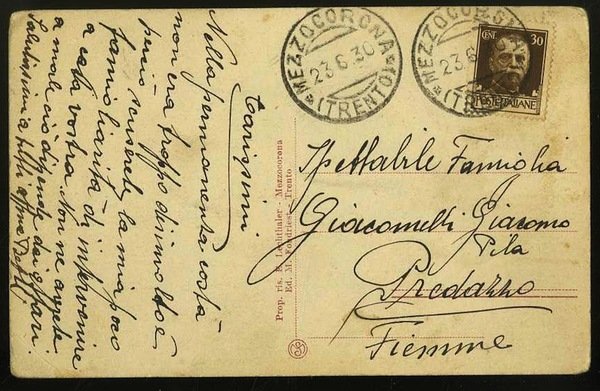 MEZZOCORONA
23.6.30
(TRENTO)
MEZZOCORONA
23.6.30
(TRENTO)
CENT 30
POSTE ITALIANE
Carissimi
Nella permanenza costà
non era troppo di molto è
perciò scuserete la mia poca
famigliarità di intervenire
a casa vostra. Non ne avrete
a male ciò dipende da gli affari.
Salutissimi a tutti
Prop. ris. B. Lechthaler - Mezzocorona
Ed. M. Fondriest - Trento
Spettabile Famiglia
Giacomelli Giacomo
Pila
Predazzo
Fiemme